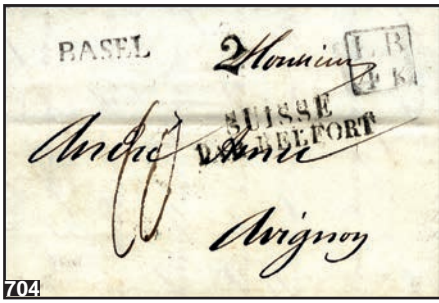 BASEL
2
Monsieur
L B
4 K
SUISSE
PAR BELFORT
André
Avignon
704